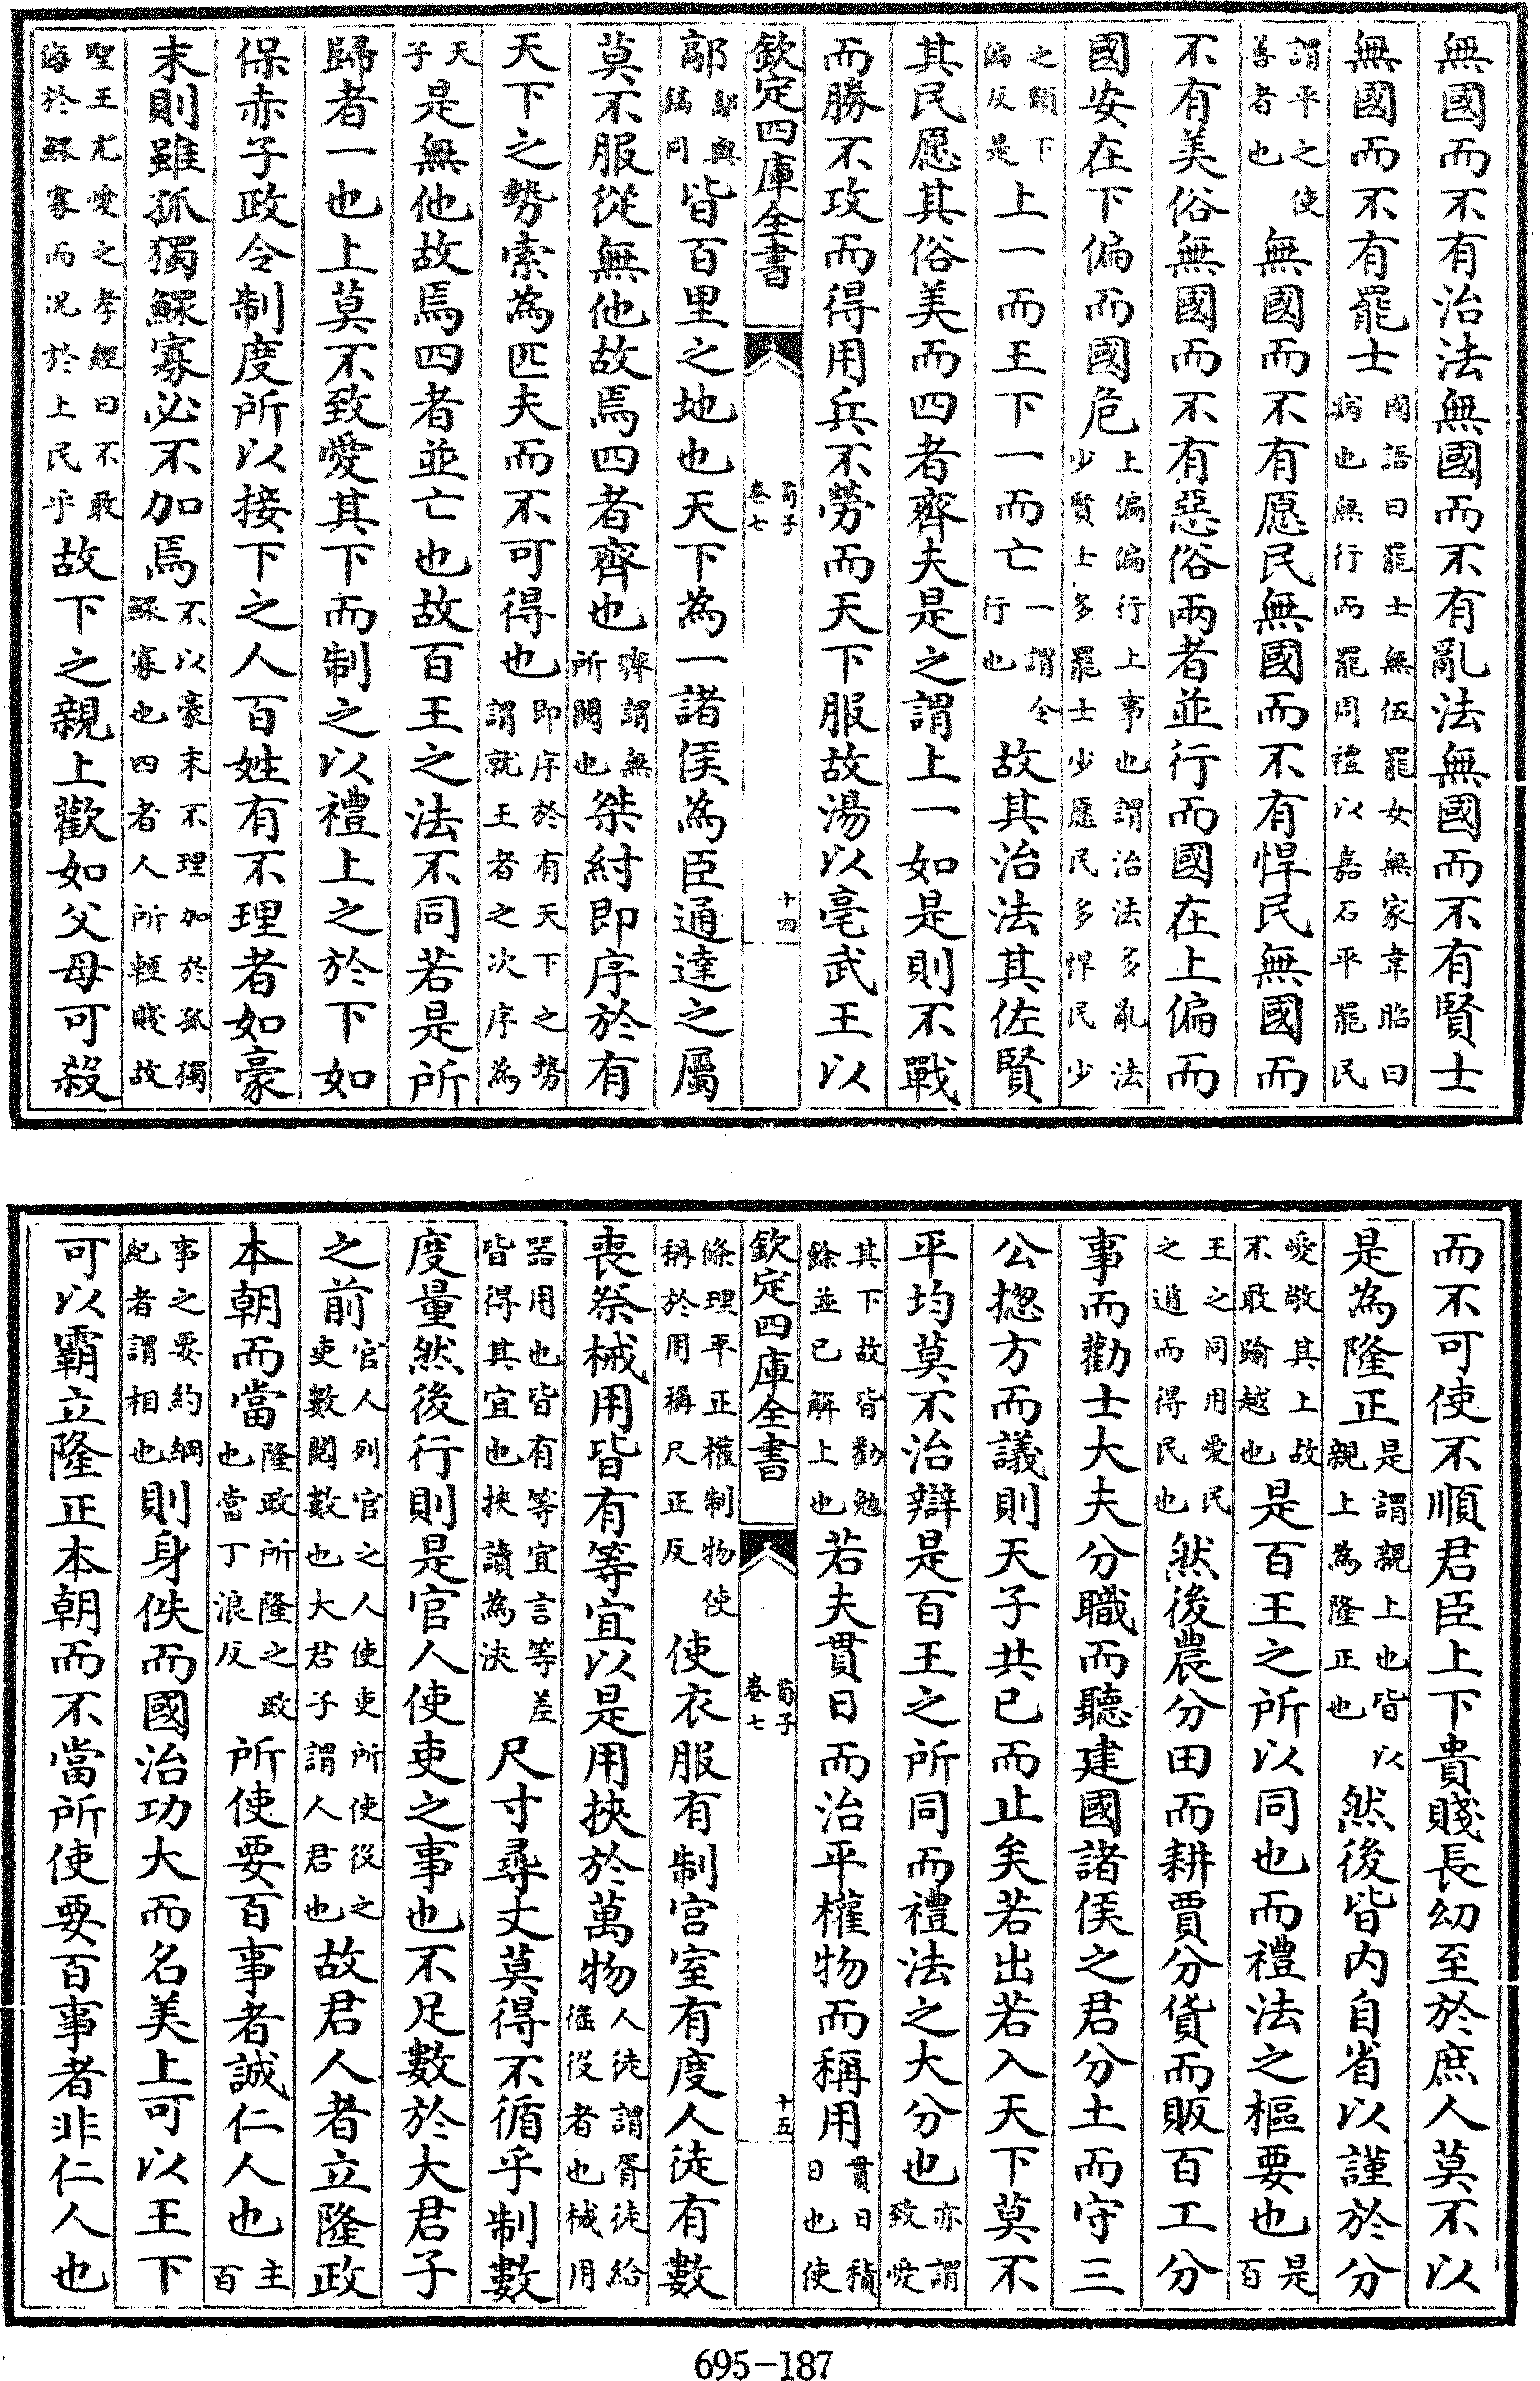 無國而不有治法無國而不有亂法無國而不有賢士
無國而不有罷士國語曰罷士無伍罷女無家韋昭曰病也無行而罷周禮以嘉石平罷民
謂平之使善者也無國而不有愿民無國而不有悍民無國而
不有美俗無國而不有惡俗兩者並行而國在上偏而
國安在下偏而國危上偏偏行上事也謂治法多亂法少賢士多罷士少愿民多悍民少
之類下偏反是上一而王下一而亡一謂令行也故其治法其佐賢
其民愿其俗美而四者齊夫是之謂上一如是則不戰
而勝不攻而得用兵不勞而天下服故湯以亳武王以
欽定四庫全書 荀子卷七 十四
鄗鄗與鎬同皆百里之地也天下為一諸侯為臣通達之屬
莫不服從無他故焉四者齊也齊謂無所闕也桀紂即序於有
天下之勢索為匹夫而不可得也即序於有天下之勢謂就王者之次序為
天子是無他故焉四者並亡也故百王之法不同若是所
歸者一也上莫不致愛其下而制之以禮上之於下如
保赤子政令制度所以接下之人百姓有不理者如豪
末則雖孤獨鰥寡必不加焉不以豪末不理加於孤獨鰥寡也四者人所輕賤故
聖王尤愛之孝經曰不敢侮於鰥寡而況於上民乎故下之親上歡如父母可殺
而不可使不順君臣上下貴賤長幼至於庶人莫不以
是為隆正是謂親上也皆以親上為隆正也然後皆內自省以謹於分
愛敬其上故不敢踰越也是百王之所以同也而禮法之樞要也是百
王之同用愛民之道而得民也然後農分田而耕賈分貨而販百工分
事而勸士大夫分職而聽建國諸侯之君分土而守三
公揔方而議則天子共已而止矣若出若入天下莫不
平均莫不治辯是百王之所同而禮法之大分也亦謂致愛
其下故皆勸勉餘並已解上也若夫貫日而治平權物而稱用貫日積日也使
欽定四庫全書 荀子卷七 十五
條理平正權制物使稱於用稱尺正反使衣服有制宮室有度人徒有數
喪祭械用皆有等宜以是用挾於萬物人徒謂胥徒給徭役者也械用
器用也皆有等宜言等差皆得其宜也挾讀為浹尺寸尋丈莫得不循乎制數
度量然後行則是官人使吏之事也不足數於大君子
之前官人列官之人使吏所使役之吏數閱數也大君子謂人君也故君人者立隆政
本朝而當隆政所隆之政也當丁浪反所使要百事者誠仁人也主百
事之要約綱紀者謂相也則身佚而國治功大而名美上可以王下
可以霸立隆正本朝而不當所使要百事者非仁人也
695-187